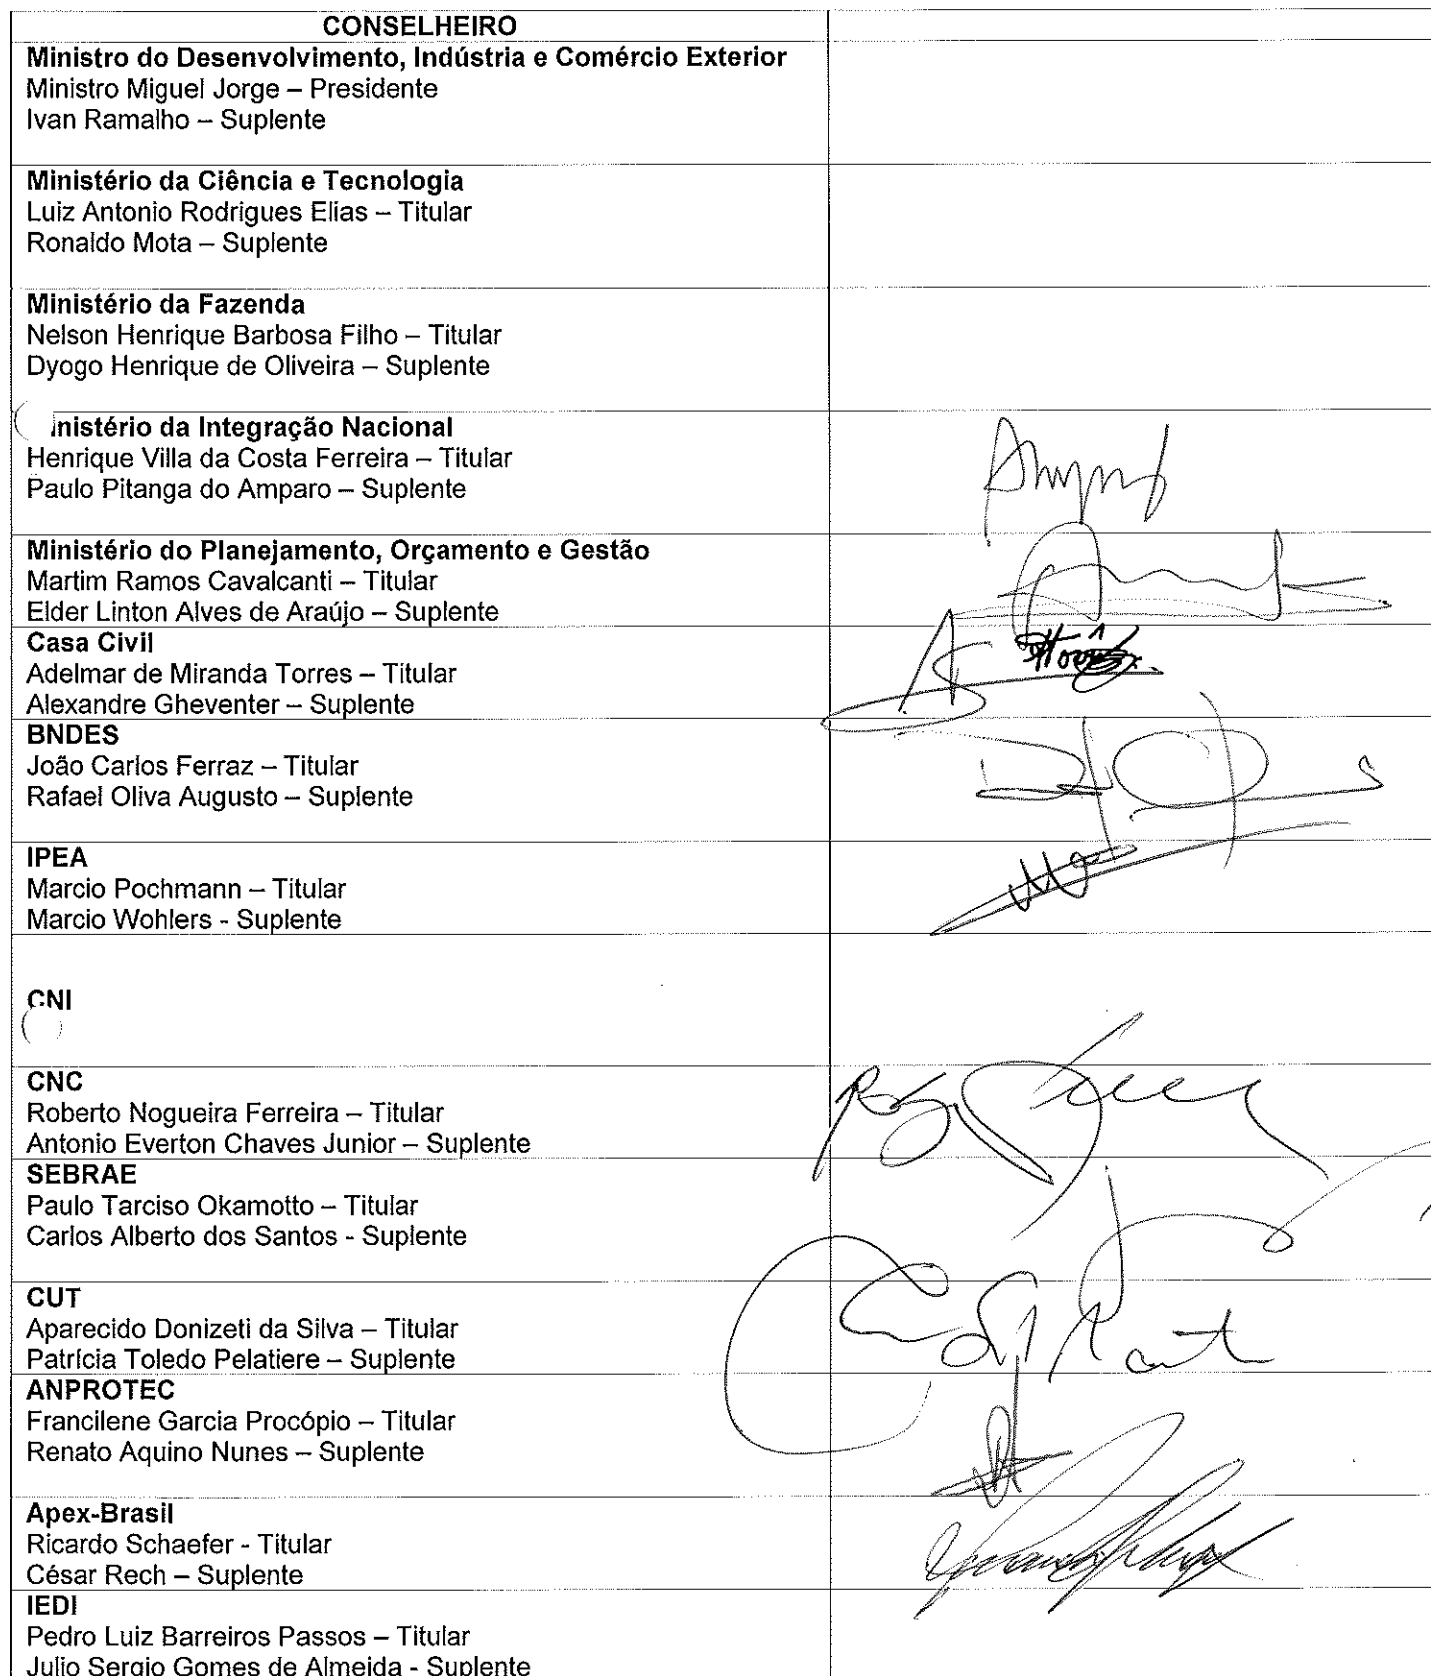 CONSELHEIRO
Ministro do Desenvolvimento, Indústria e Comércio Exterior
Ministro Miguel Jorge – Presidente
Ivan Ramalho – Suplente
Ministério da Ciência e Tecnologia
Luiz Antonio Rodrigues Elias – Titular
Ronaldo Mota – Suplente
Ministério da Fazenda
Nelson Henrique Barbosa Filho – Titular
Dyogo Henrique de Oliveira – Suplente
inistério da Integração Nacional
Henrique Villa da Costa Ferreira – Titular
Paulo Pitanga do Amparo – Suplente
Ministério do Planejamento, Orçamento e Gestão
Martim Ramos Cavalcanti – Titular
Elder Linton Alves de Araújo – Suplente
Casa Civil
Adelmar de Miranda Torres – Titular
Alexandre Gheventer – Suplente
BNDES
João Carlos Ferraz – Titular
Rafael Oliva Augusto – Suplente
IPEA
Marcio Pochmann – Titular
Marcio Wohlers - Suplente
CNI
CNC
Roberto Nogueira Ferreira – Titular
Antonio Everton Chaves Junior – Suplente
SEBRAE
Paulo Tarciso Okamotto – Titular
Carlos Alberto dos Santos - Suplente
CUT
Aparecido Donizeti da Silva – Titular
Patrícia Toledo Pelatiere – Suplente
ANPROTEC
Francilene Garcia Procópio – Titular
Renato Aquino Nunes – Suplente
Apex-Brasil
Ricardo Schaefer - Titular
César Rech – Suplente
IEDI
Pedro Luiz Barreiros Passos – Titular
Julio Sergio Gomes de Almeida - Suplente